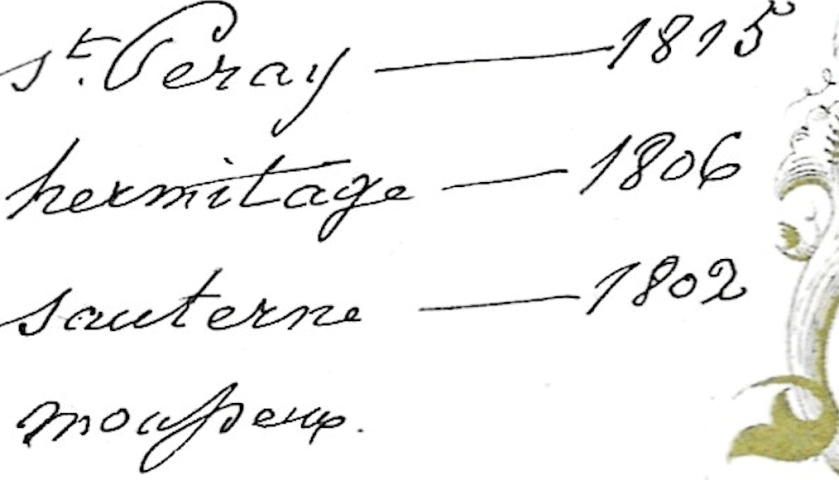 st. Peray — 1815
hermitage — 1806
sauterne — 1802
mousseux.